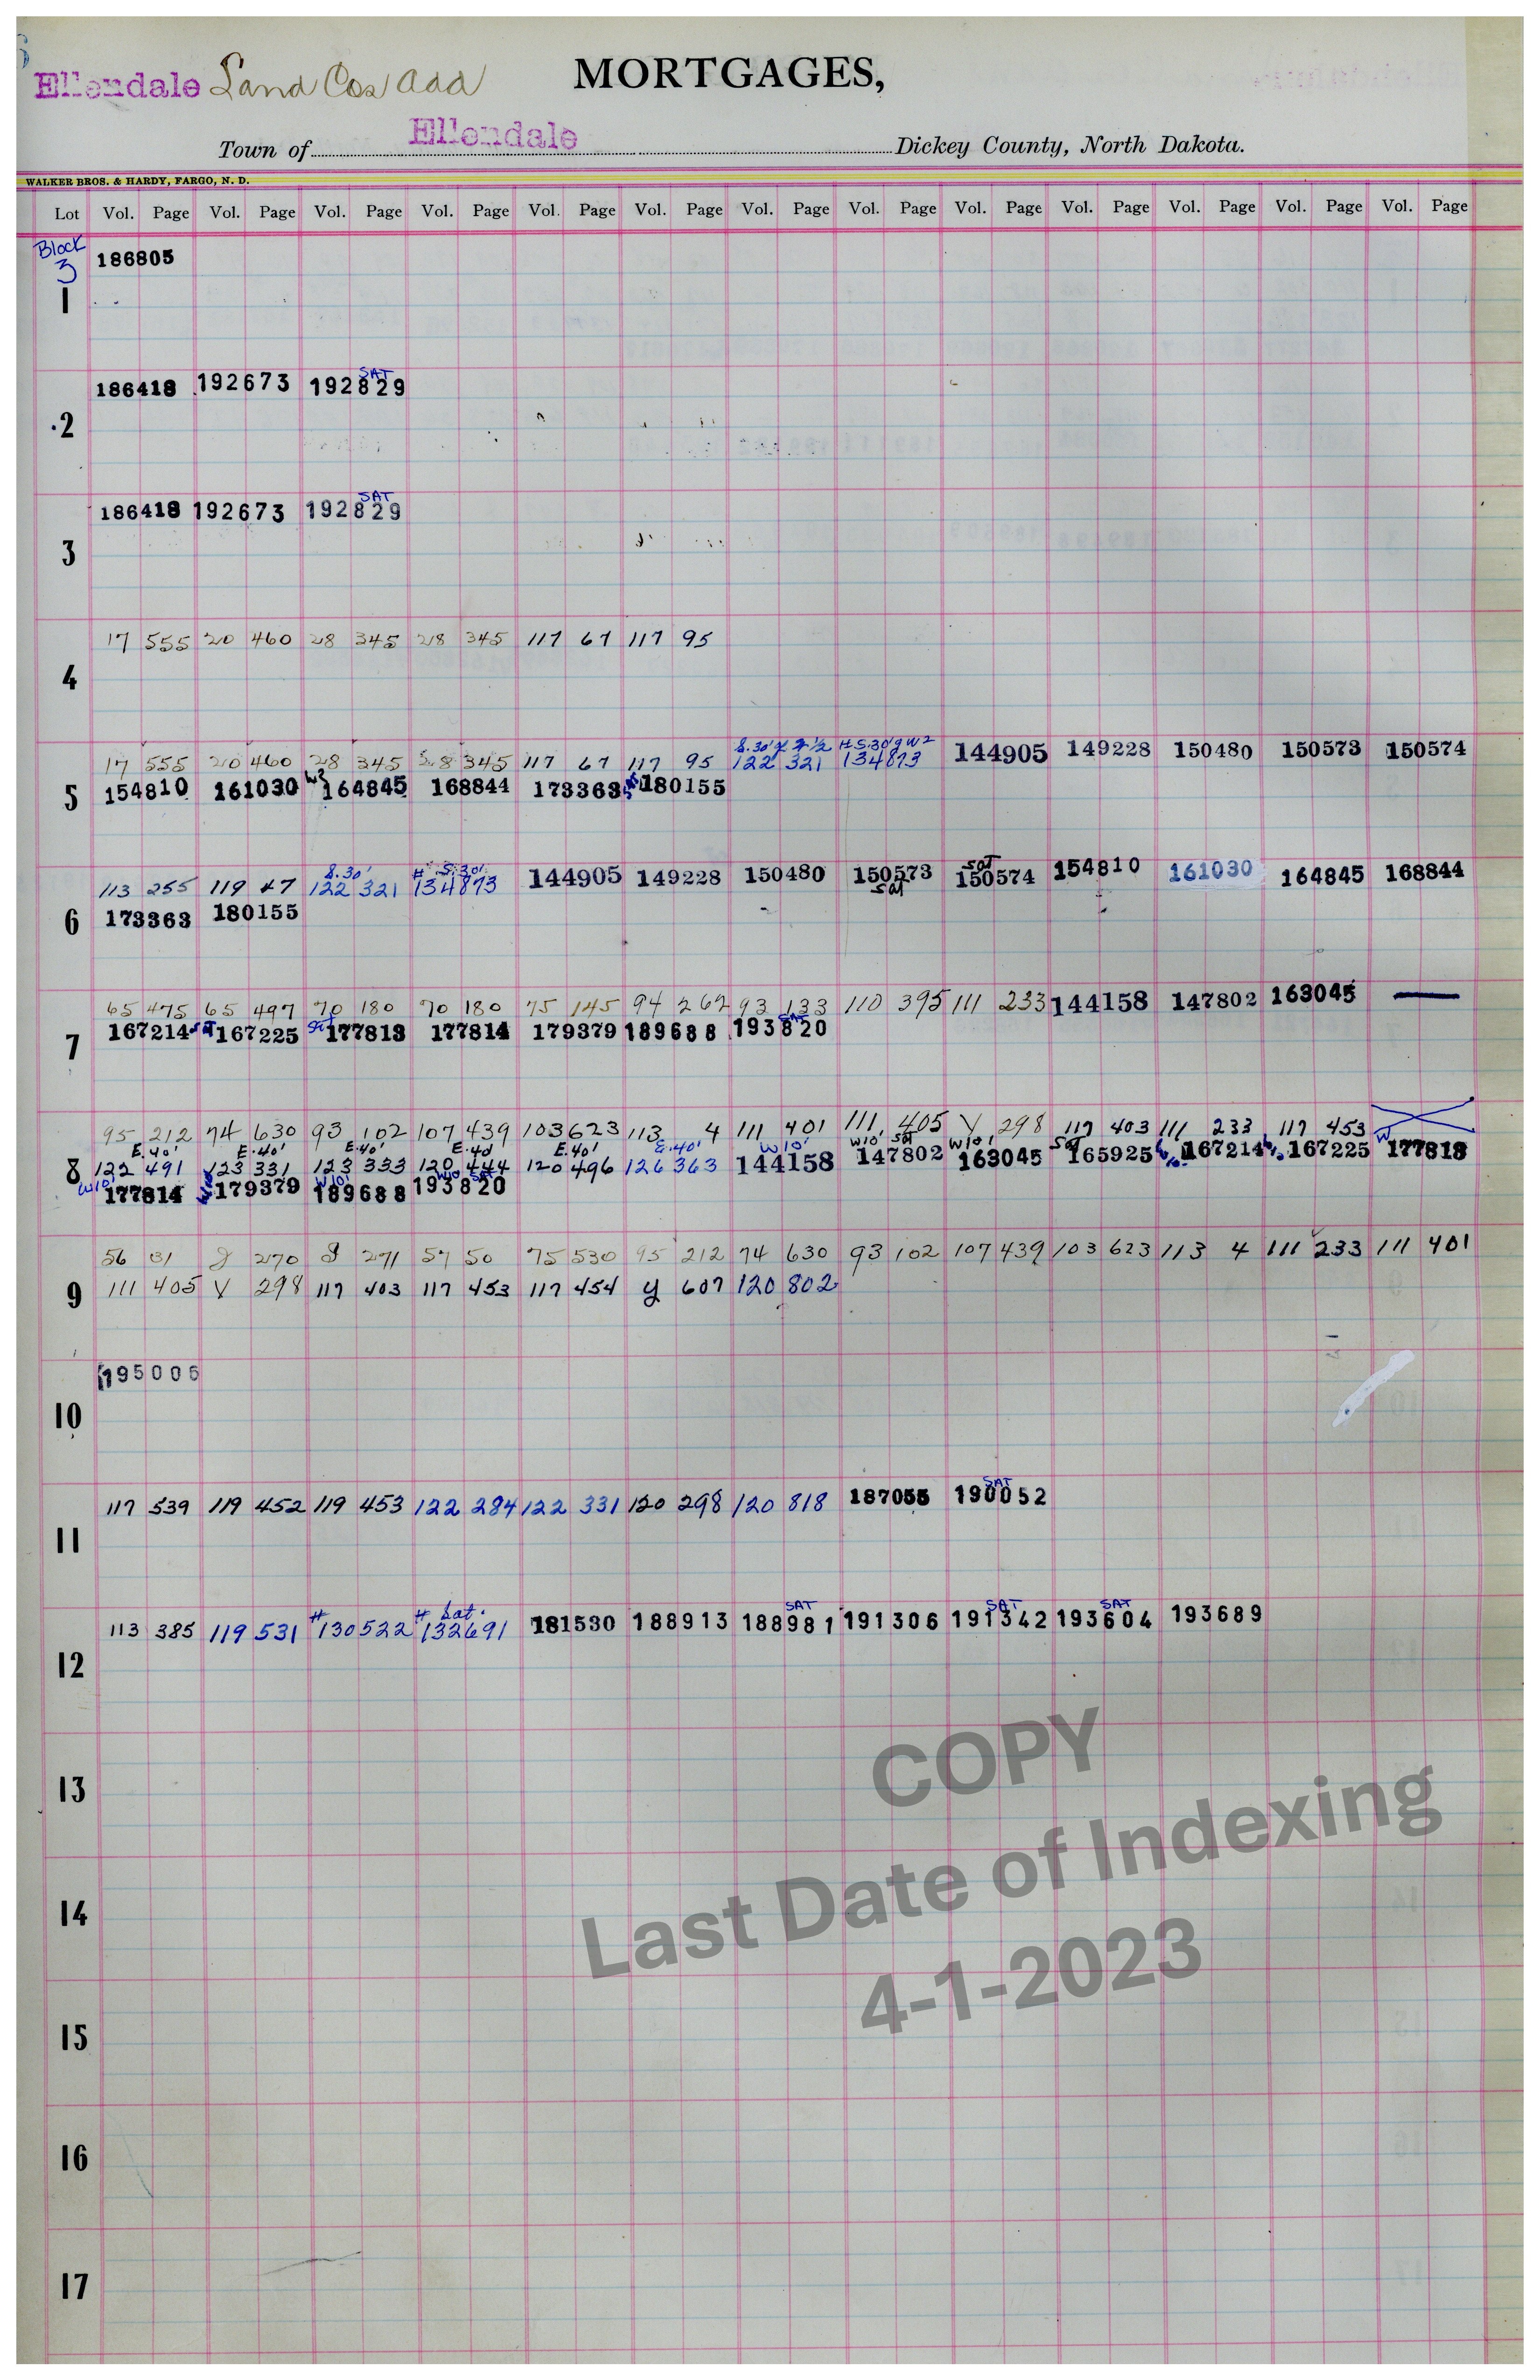 Ellendale Land Cos Add
MORTGAGES,
Town of Ellendale Dickey County, North Dakota.
WALKER BROS. & HARDY, FARGO, N. D.
Lot Vol. Page Vol. Page Vol. Page Vol. Page Vol. Page Vol. Page Vol. Page Vol. Page Vol. Page Vol. Page Vol. Page Vol. Page Vol. Page
Block 3
186805
1
SAT
186418 192673 192829
2
SAT
186418 192673 192829
3
17 555 20 460 28 345 28 345 117 67 117 95
4
17 555 20 460 28 345 28 345 117 67 117 95 122 321 134873 144905 149228 150480 150573 150574
5 154810 161030 164845 168844 173363 180155
S.30' # S.30'
113 255 119 47 122 321 134873 144905 149228 150480 150573 sat 150574 sat 154810 161030 164845 168844
6 173363 180155
65 475 65 497 70 180 70 180 75 145 94 262 93 133 110 395 111 233 144158 147802 163045
7 167214 sat 167225 sat 177813 177814 179379 189688 193820 SAT
95 212 74 630 93 102 107 439 103 623 113 4 111 401 111 405 Y 298 117 403 111 233 117 453
E.40' E.40' E.40' E.40 E.40' E.40' W10' W10' sat W10' sat
8 122 491 123 331 123 333 120 444 120 496 126 363 144158 147802 163045 165925 167214 167225 W 177813
W10' 177814 179379 W10' 189688 W10 SAT 193820
56 31 270 271 57 50 75 530 95 212 74 630 93 102 107 439 103 623 113 4 111 233 111 401
9 111 405 Y 298 117 403 117 453 117 454 y 607 120 802
195006
10
SAT
117 539 119 452 119 453 122 284 122 331 120 298 120 818 187055 190052
11
# # Sat. SAT SAT SAT
113 385 119 531 130522 132691 181530 188913 188981 191306 191342 193604 193689
12
13
14
15
16
17
COPY
Last Date of Indexing
4-1-2023